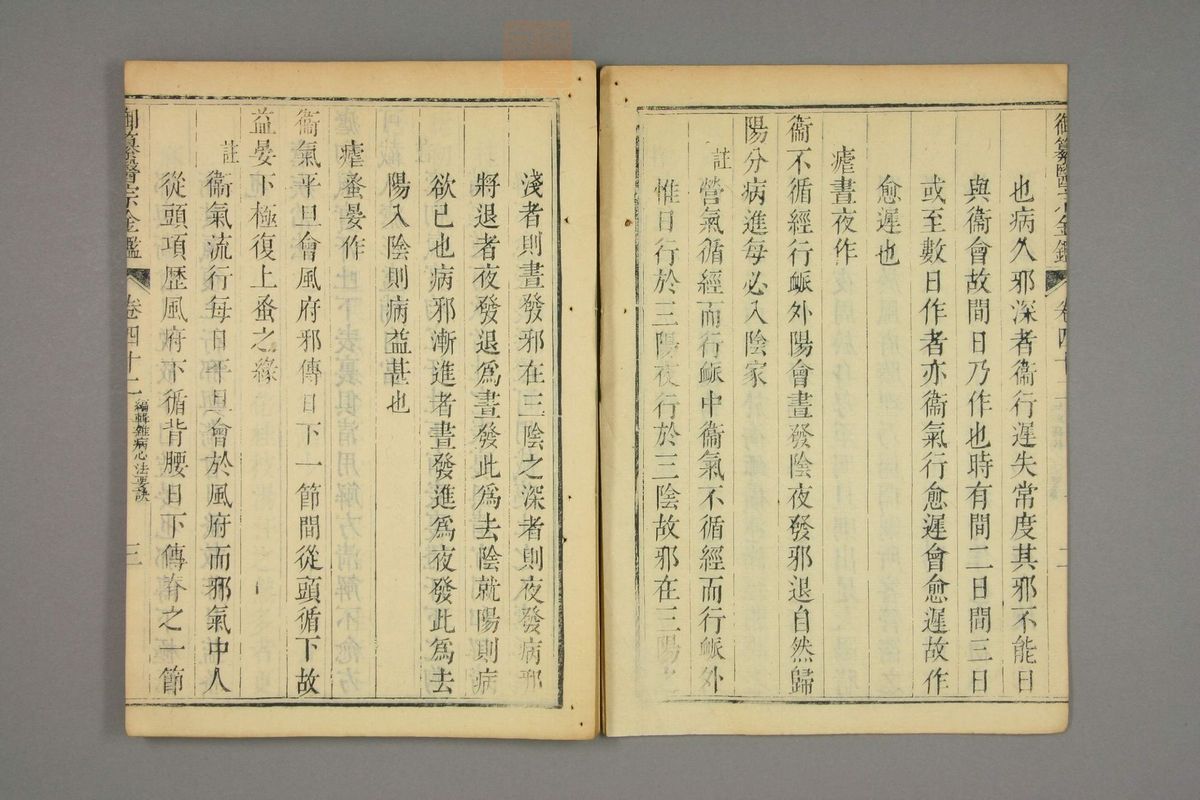 御纂醫宗金鑑 卷四十二 二
也病久邪深者衞行遲失常度其邪不能日
與衞會故間日乃作也時有間二日間三日
或至數日作者亦衞氣行愈遲會愈遲故作
愈遲也
瘧晝夜作
衞不循經行脈外陽會晝發陰夜發邪退自然歸
陽分病進每必入陰家
註營氣循經而行脈中衞氣不循經而行脈外
惟日行於三陽夜行於三陰故邪在三陽
淺者則晝發邪在三陰之深者則夜發病邪
將退者夜發退爲晝發此爲去陰就陽則病
欲已也病邪漸進者晝發進爲夜發此爲去
陽入陰則病益甚也
瘧蚤晏作
衞氣平旦會風府邪傳日下一節間從頭循下故
益晏下極復上蚤之緣
註衞氣流行每日平旦會於風府而邪氣中人
從頭項歷風府下循背腰日下傳脊之一節
御纂醫宗金鑑 卷四十二 編輯雜病心法要訣 三